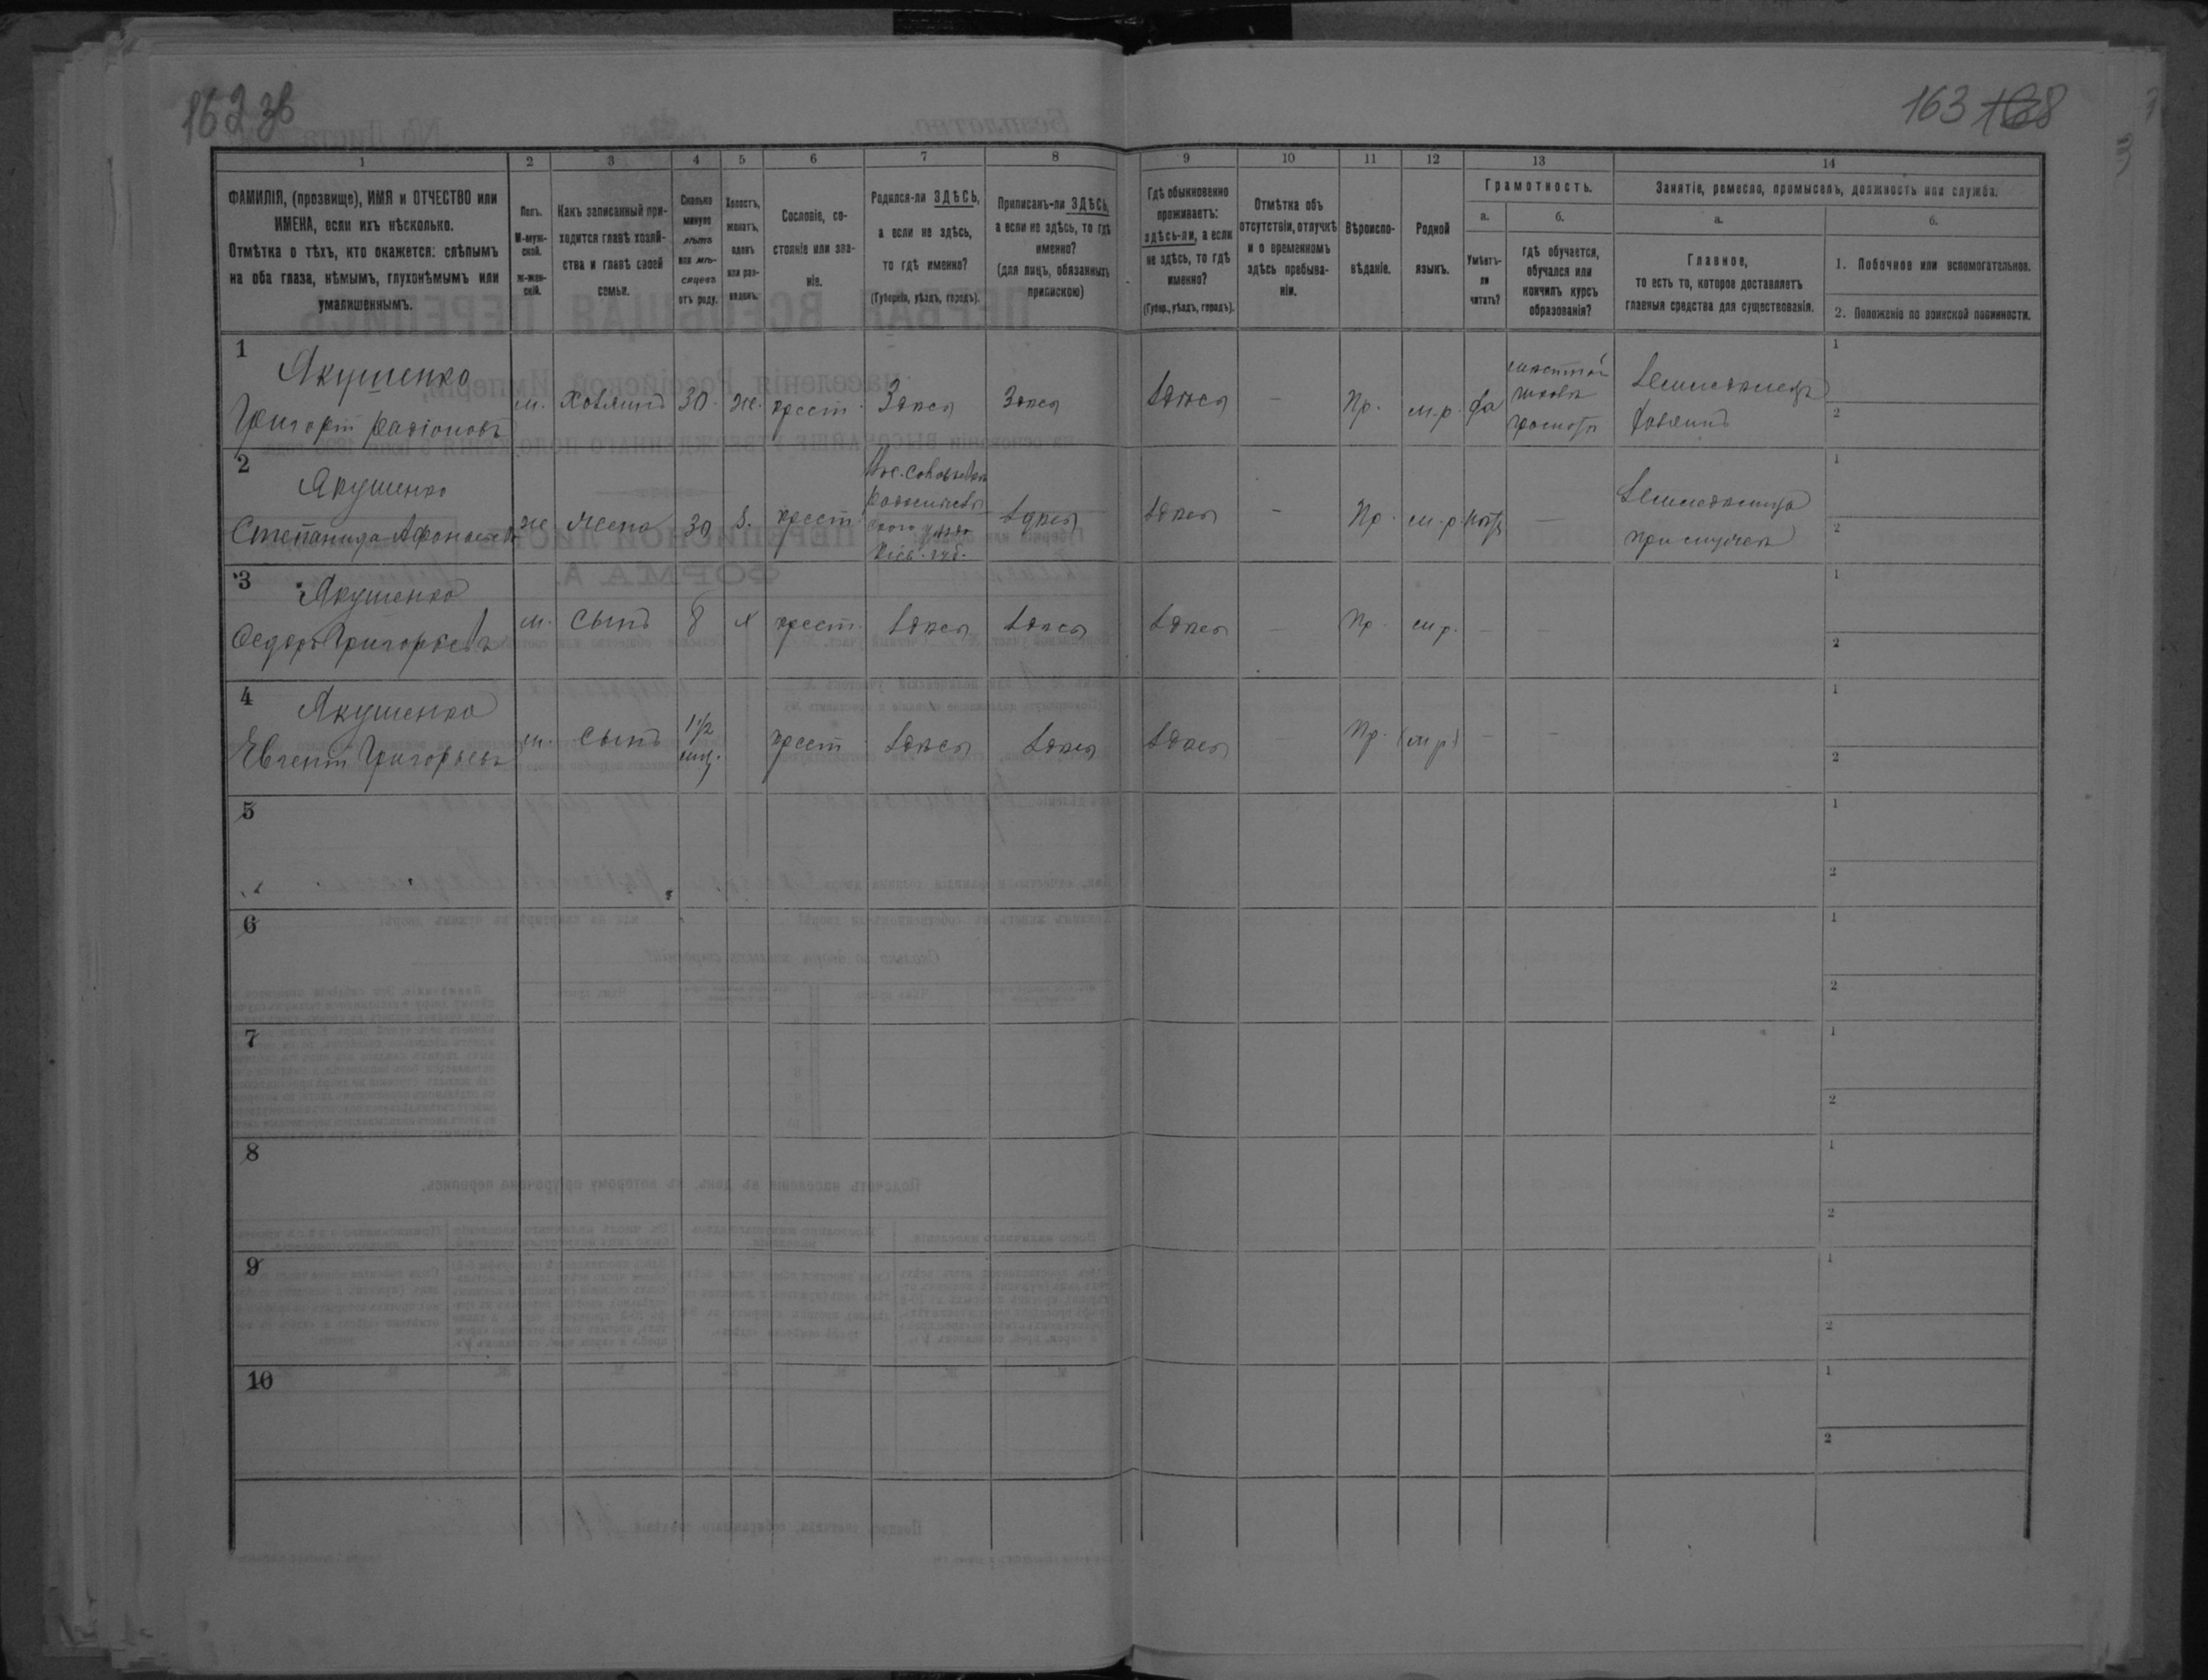 162 зв
163 168
1
2
3
4
5
6
7
8
9
10
11
12
13
14
ФАМИЛІЯ, (прозвище), ИМЯ и ОТЧЕСТВО или
ИМЕНА, если ихъ нѣсколько.
Отмѣтка о тѣхъ, кто окажется: слѣпымъ
на оба глаза, нѣмымъ, глухонѣмымъ или
умалишеннымъ.
Полъ.
М-муж-
ской.
Ж-жен-
скій.
Какъ записанный при-
ходится главѣ хозяй-
ства и главѣ своей
семьи.
Сколько
минуло
лѣтъ
или мѣ-
сяцевъ
отъ роду.
Холостъ,
женатъ,
вдовъ
или раз-
веденъ.
Сословіе, со-
стояніе или зва-
ніе.
Родился-ли ЗДѢСЬ,
а если не здѣсь,
то гдѣ именно?
(Губернія, уѣздъ, городъ).
Приписанъ-ли ЗДѢСЬ,
а если не здѣсь, то гдѣ
именно?
(для лицъ, обязанныхъ
припискою)
Гдѣ обыкновенно
проживаетъ:
здѣсь-ли, а если
не здѣсь, то гдѣ
именно?
(Губер., уѣздъ, городъ).
Отмѣтка объ
отсутствіи, отлучкѣ
и о временномъ
здѣсь пребыва-
ніи.
Вѣроиспо-
вѣданіе.
Родной
языкъ.
Грамотность.
а.
Умѣетъ-
ли
читать?
б.
гдѣ обучается,
обучался или
кончилъ курсъ
образованія?
Занятіе, ремесло, промыселъ, должность или служба.
а.
Главное,
то есть то, которое доставляетъ
главныя средства для существованія.
б.
1. Побочное или вспомогательное.
2. Положеніе по воинской повинности.
1
Якушенко
Григорій Родіоновъ
м. хозяинъ 30 ж. крест. Здѣсь Здѣсь Здѣсь - Пр. м.р. да
школѣ
грамоты
Земледѣлецъ
хозяинъ
1
2
2
Якушенко
Степанида Афанасьев
ж жена 30 З. крест.
уѣзда
Кіев. губ.
Здѣсь Здѣсь - Пр. м.р. нѣтъ -
Земледѣлица
при мужѣ
1
2
3
Якушенко
Федоръ Григорьевъ
м. сынъ 8 х крест. Здѣсь Здѣсь Здѣсь - Пр. м р. - -
1
2
4
Якушенко
Евгеній Григорьевъ
м. сынъ 1 1/2
мѣс.
крест Здѣсь Здѣсь Здѣсь - Пр. (м р) - -
1
2
5
1
2
6
1
2
7
1
2
8
1
2
9
1
2
10
1
2